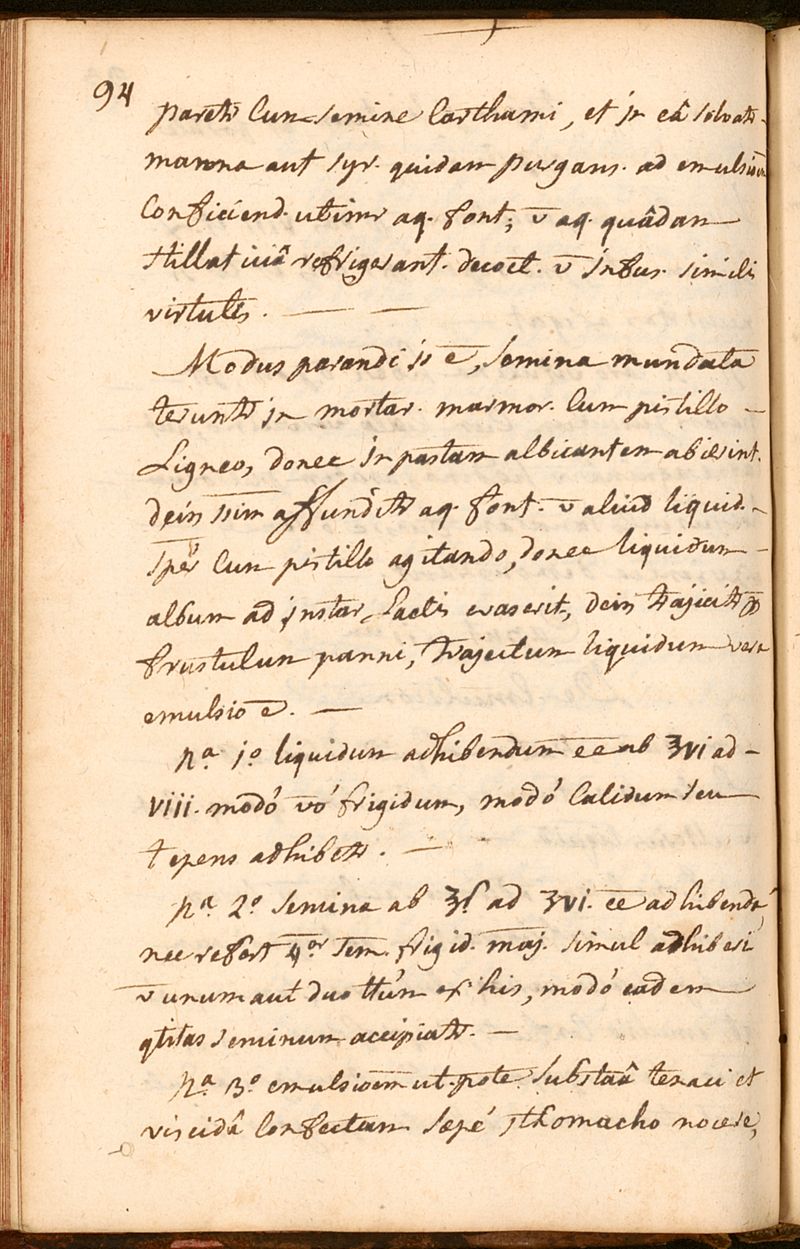 94
paretr Cum semine Carthami, et in eâ solvatr
manna aut syr. quidam purgans. ad emulsioem
Conficiend. utimr aq. font; v̄ aq. quâdam
stillatitiâ refrigerant. decoct. v̄ infus. similis
virtutis. — —
Modus parandi is ē, semina mundata
teruntr in mortar. marmor. Cum pistillo —
Ligneo, donec in pastam albicantem abierint.
dein ssim affunditr aq. font. v̄ aliud liquid. –
spēr Cum pistillo agitando, donec liquidum –
album ad instar Lactis evaserit, dein trajicitr p
frustulum panni, trajectum liquidum vera
emulsio ē. —
Na. 1o liquidum adhibendum ēē ab ℥vi ad –
VIII. modó vó frigidum, modó Calidum seu
tepens adhibetr. —
Na. 2o semina ab ℥ſ ad ʒvi. ēē adhibenda,
nec refert 4or sem. frigid. maj. simul adhiberi
v̄ unum aut duo ttúm ex his, modó eadem
qtitas seminum accipiatr. —
Na. 3o emulsioem ut-pote substaâ tenaci et
viscidâ Confectam sæpé sthomacho nocere,